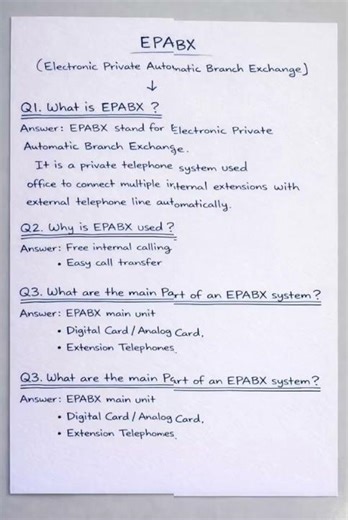 EPABX
(Electronic Private Automatic Branch Exchange)
↓
Q1. What is EPABX ?
Answer: EPABX stand for Electronic Private
Automatic Branch Exchange.
It is a private telephone system used
office to connect multiple internal extensions with
external telephone line automatically.
Q2. Why is EPABX used ?
Answer: Free internal calling
• Easy call transfer
Q3. What are the main Part of an EPABX system ?
Answer: EPABX main unit
• Digital Card / Analog Card.
• Extension Telephones.
Q3. What are the main Part of an EPABX system ?
Answer: EPABX main unit
• Digital Card / Analog Card.
• Extension Telephones.